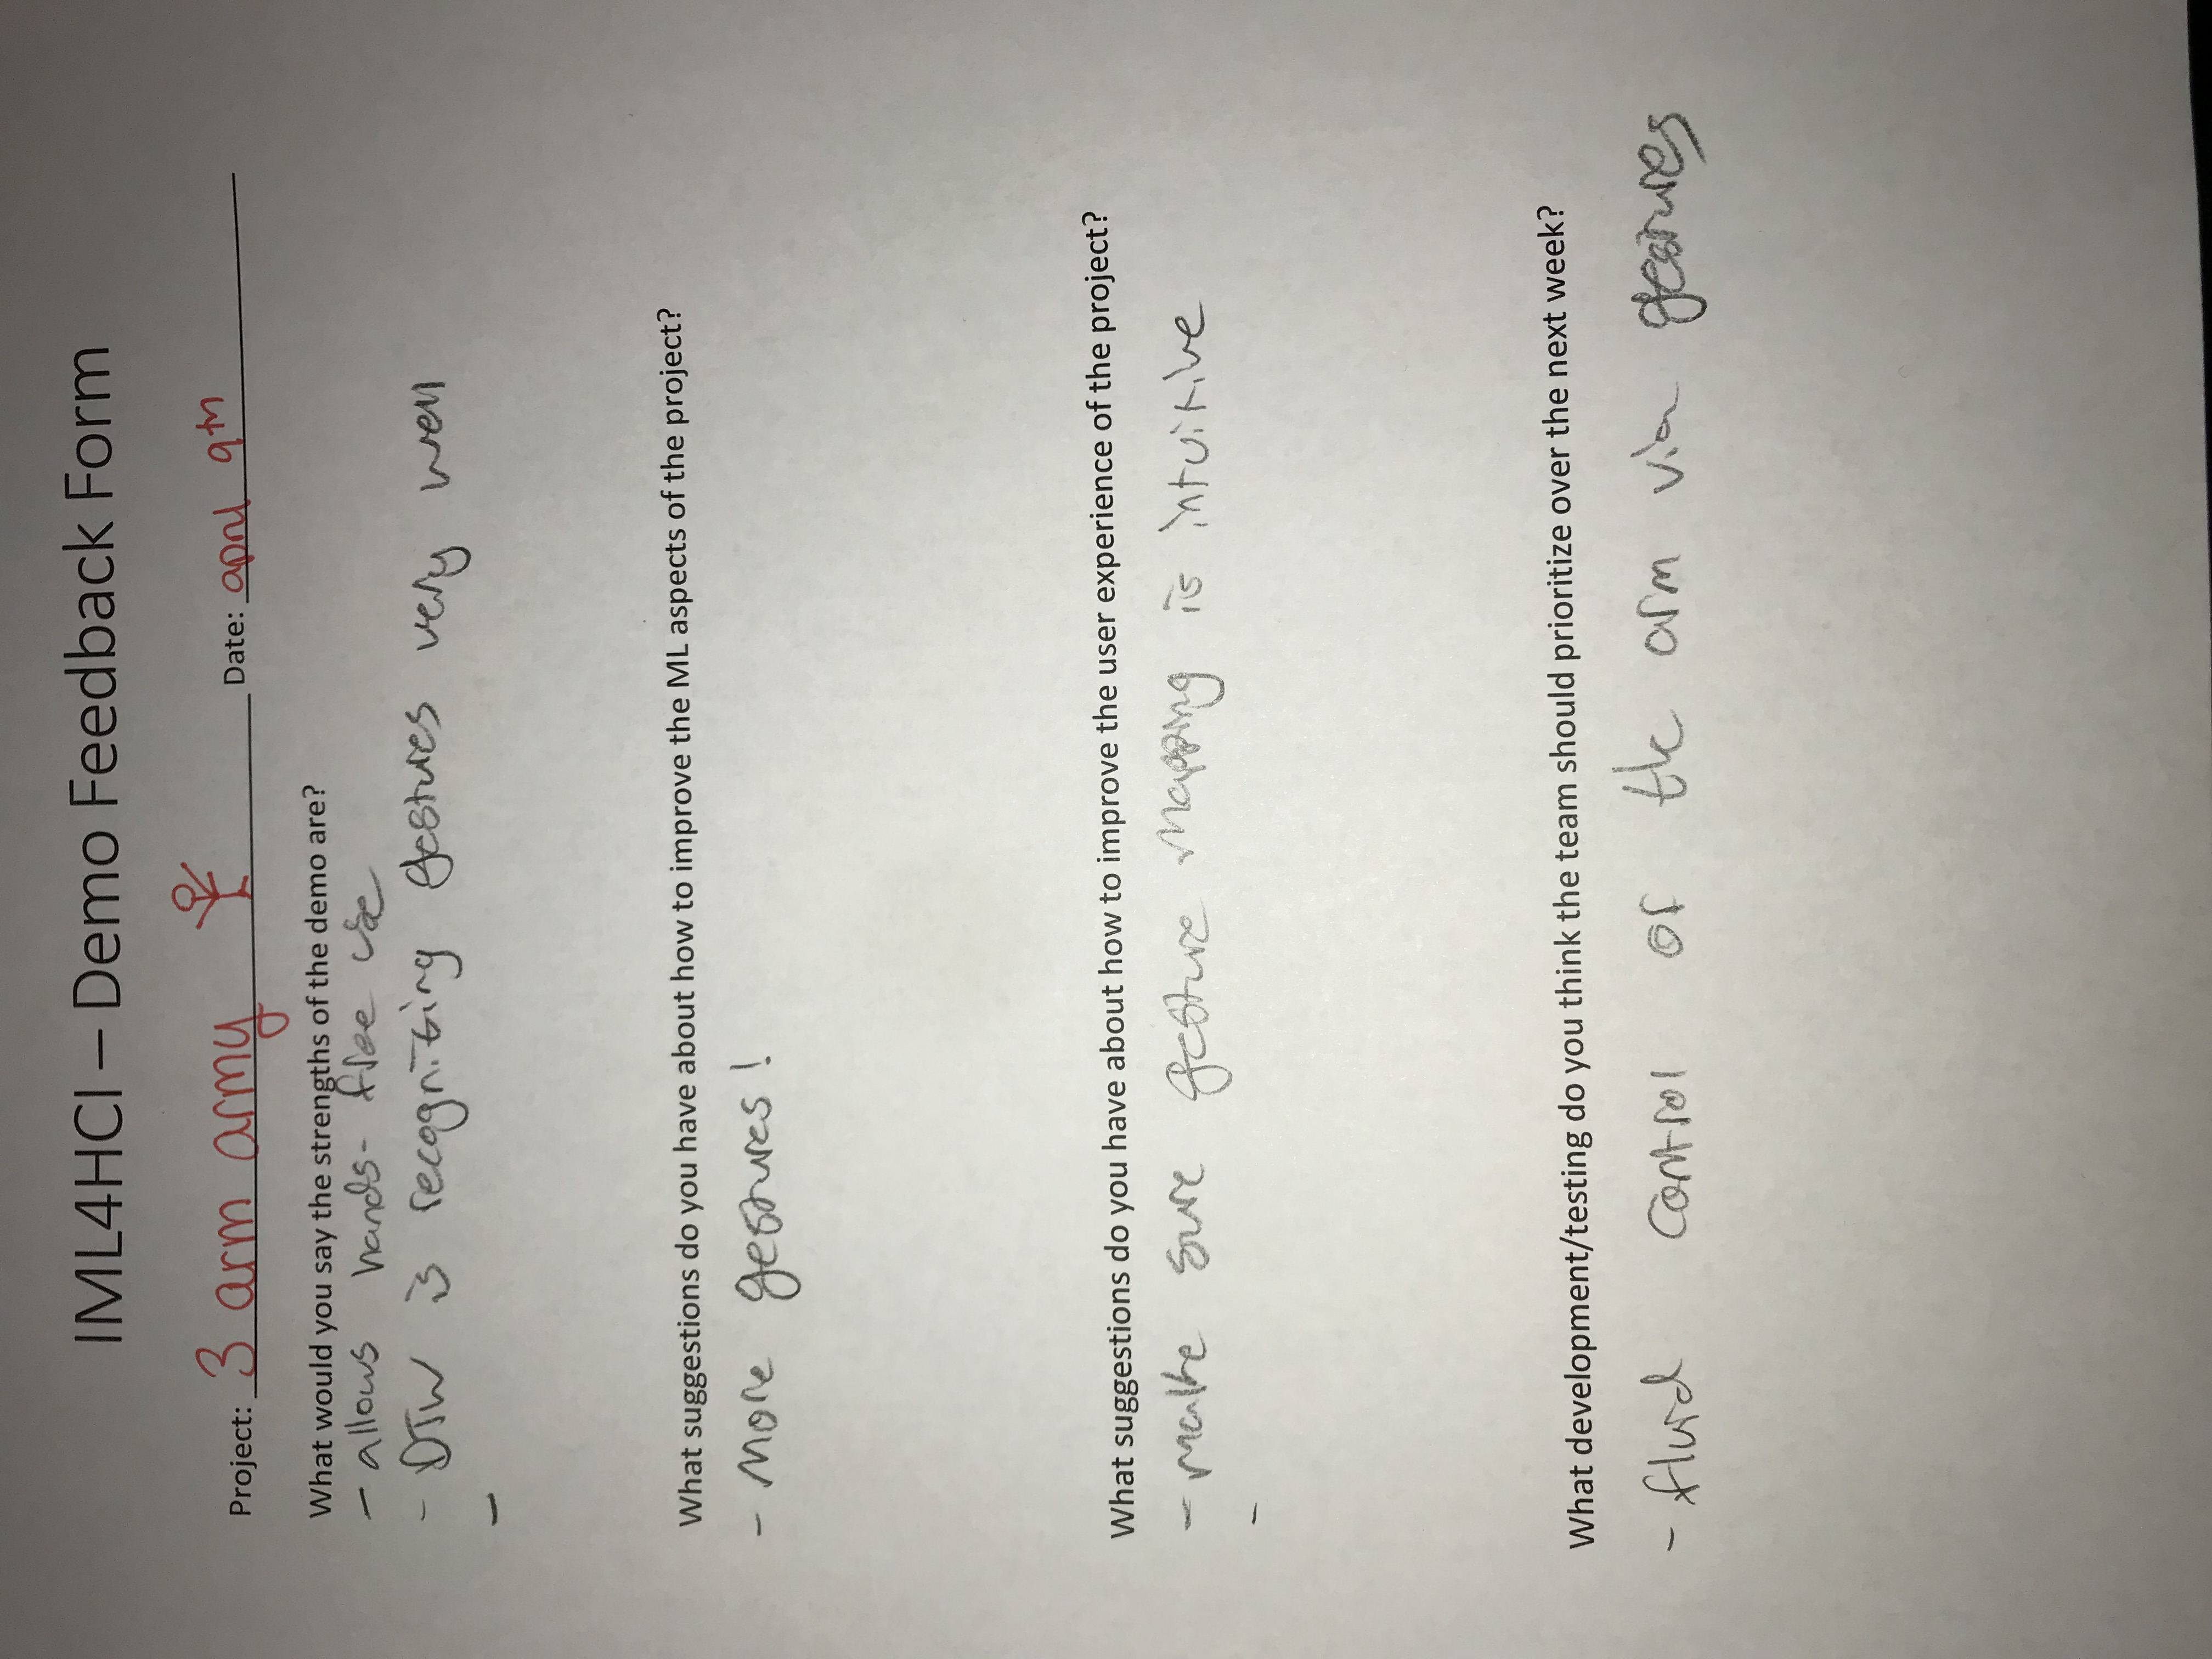 IML4HCI – Demo Feedback Form
Project: 3 arm army Date: april 9th
What would you say the strengths of the demo are?
- allows hands-free use
- DTW is recognizing gestures very well
-
What suggestions do you have about how to improve the ML aspects of the project?
- More gestures!
What suggestions do you have about how to improve the user experience of the project?
- make sure gesture mapping is intuitive
-
What development/testing do you think the team should prioritize over the next week?
- fluid control of the arm via gestures